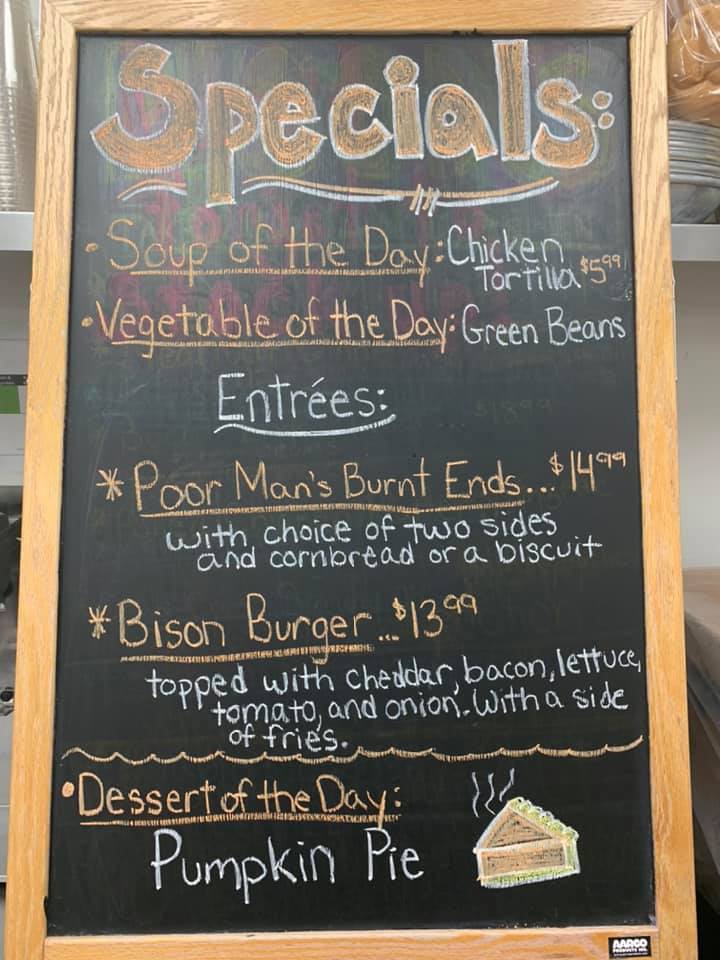 Specials:
• Soup of the Day: Chicken
Tortilla $5.99
• Vegetable of the Day: Green Beans
Entrées:
* Poor Man's Burnt Ends... $14.99
with choice of two sides
and cornbread or a biscuit
* Bison Burger... $13.99
topped with cheddar, bacon, lettuce,
tomato, and onion. With a side
of fries.
• Dessert of the Day:
Pumpkin Pie
AARCO
PRODUCTS INC.